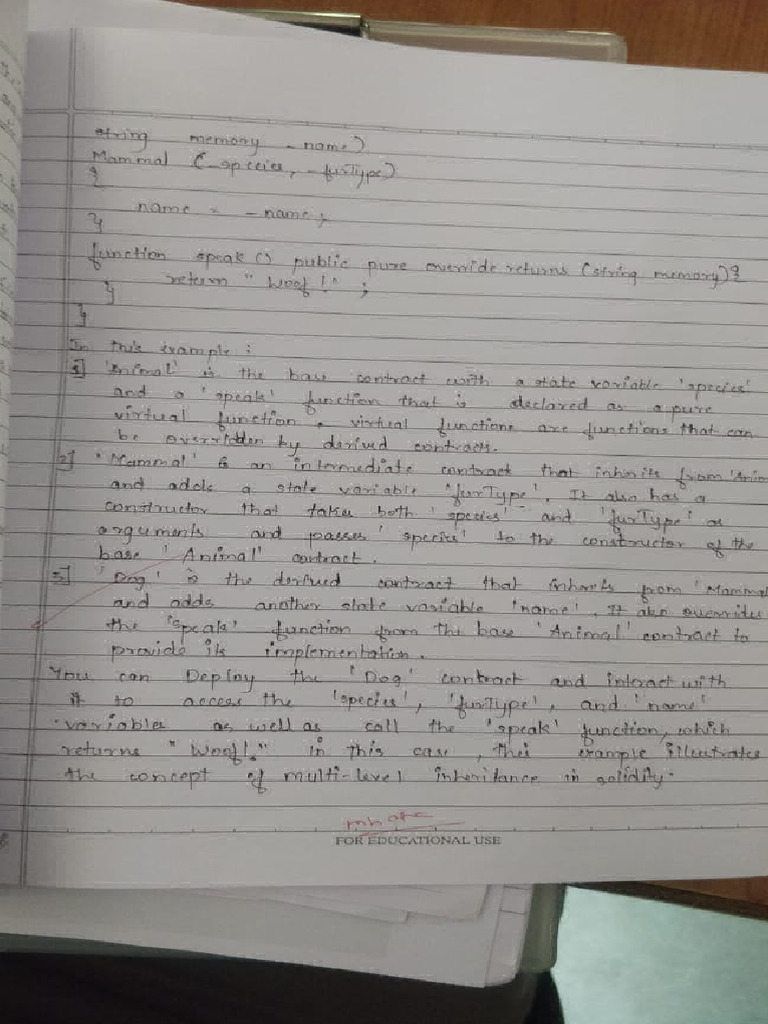 string memory _name)
Mammal (_species, _furType)
{
name = _name;
}
function speak () public pure override returns (string memory){
return "Woof!" ;
}
}
In this example :
1] 'Animal' is the base contract with a state variable 'species'
and a 'speak' function that is declared as a pure
virtual function. virtual functions are functions that can
be overridden by derived contracts.
2] 'Mammal' is an intermediate contract that inherits from 'Anim
and adds a state variable 'furType'. It also has a
constructor that takes both 'species' and 'furType' as
arguments and passes 'species' to the constructor of the
base 'Animal' contract.
3] 'Dog' is the derived contract that inherits from 'Mammal
and adds another state variable 'name'. It also overrides
the 'speak' function from the base 'Animal' contract to
provide its implementation.
You can Deploy the 'Dog' contract and interact with
it to access the 'species', 'furType', and 'name'
variables as well as call the 'speak' function, which
returns "Woof!" in this case, this example illustrates
the concept of multi-level inheritance in solidity.
FOR EDUCATIONAL USE